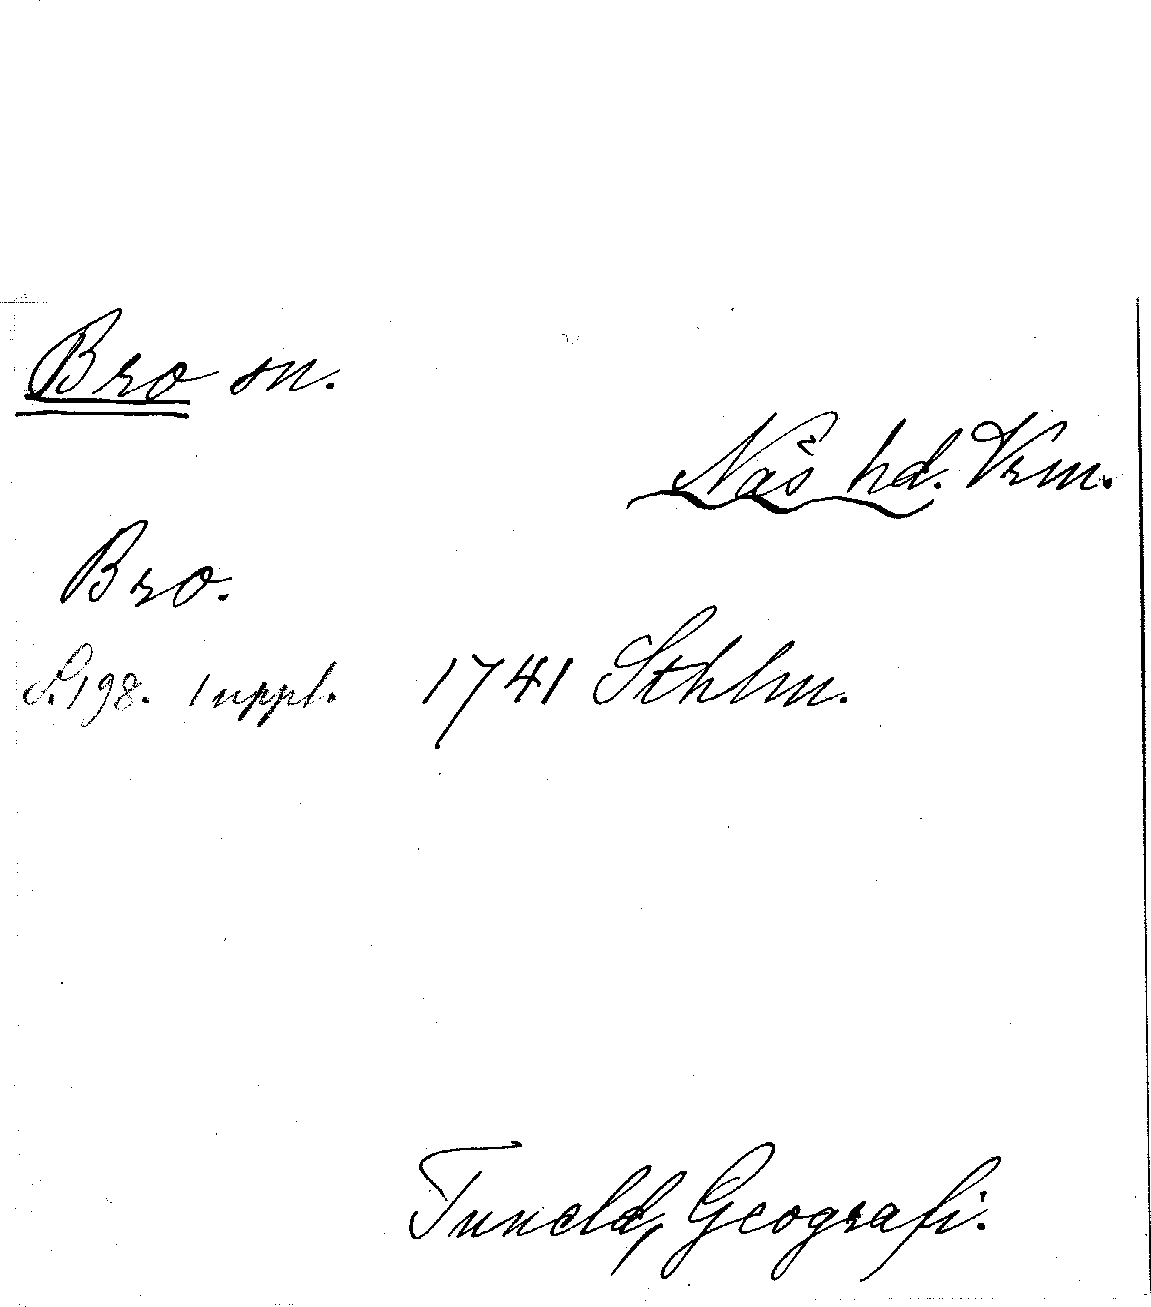 Bro sn.
Näs hd. Vrm.
Bro.
S. 198. 1 uppl. 1741 Sthlm.
Tuneld, Geografi.